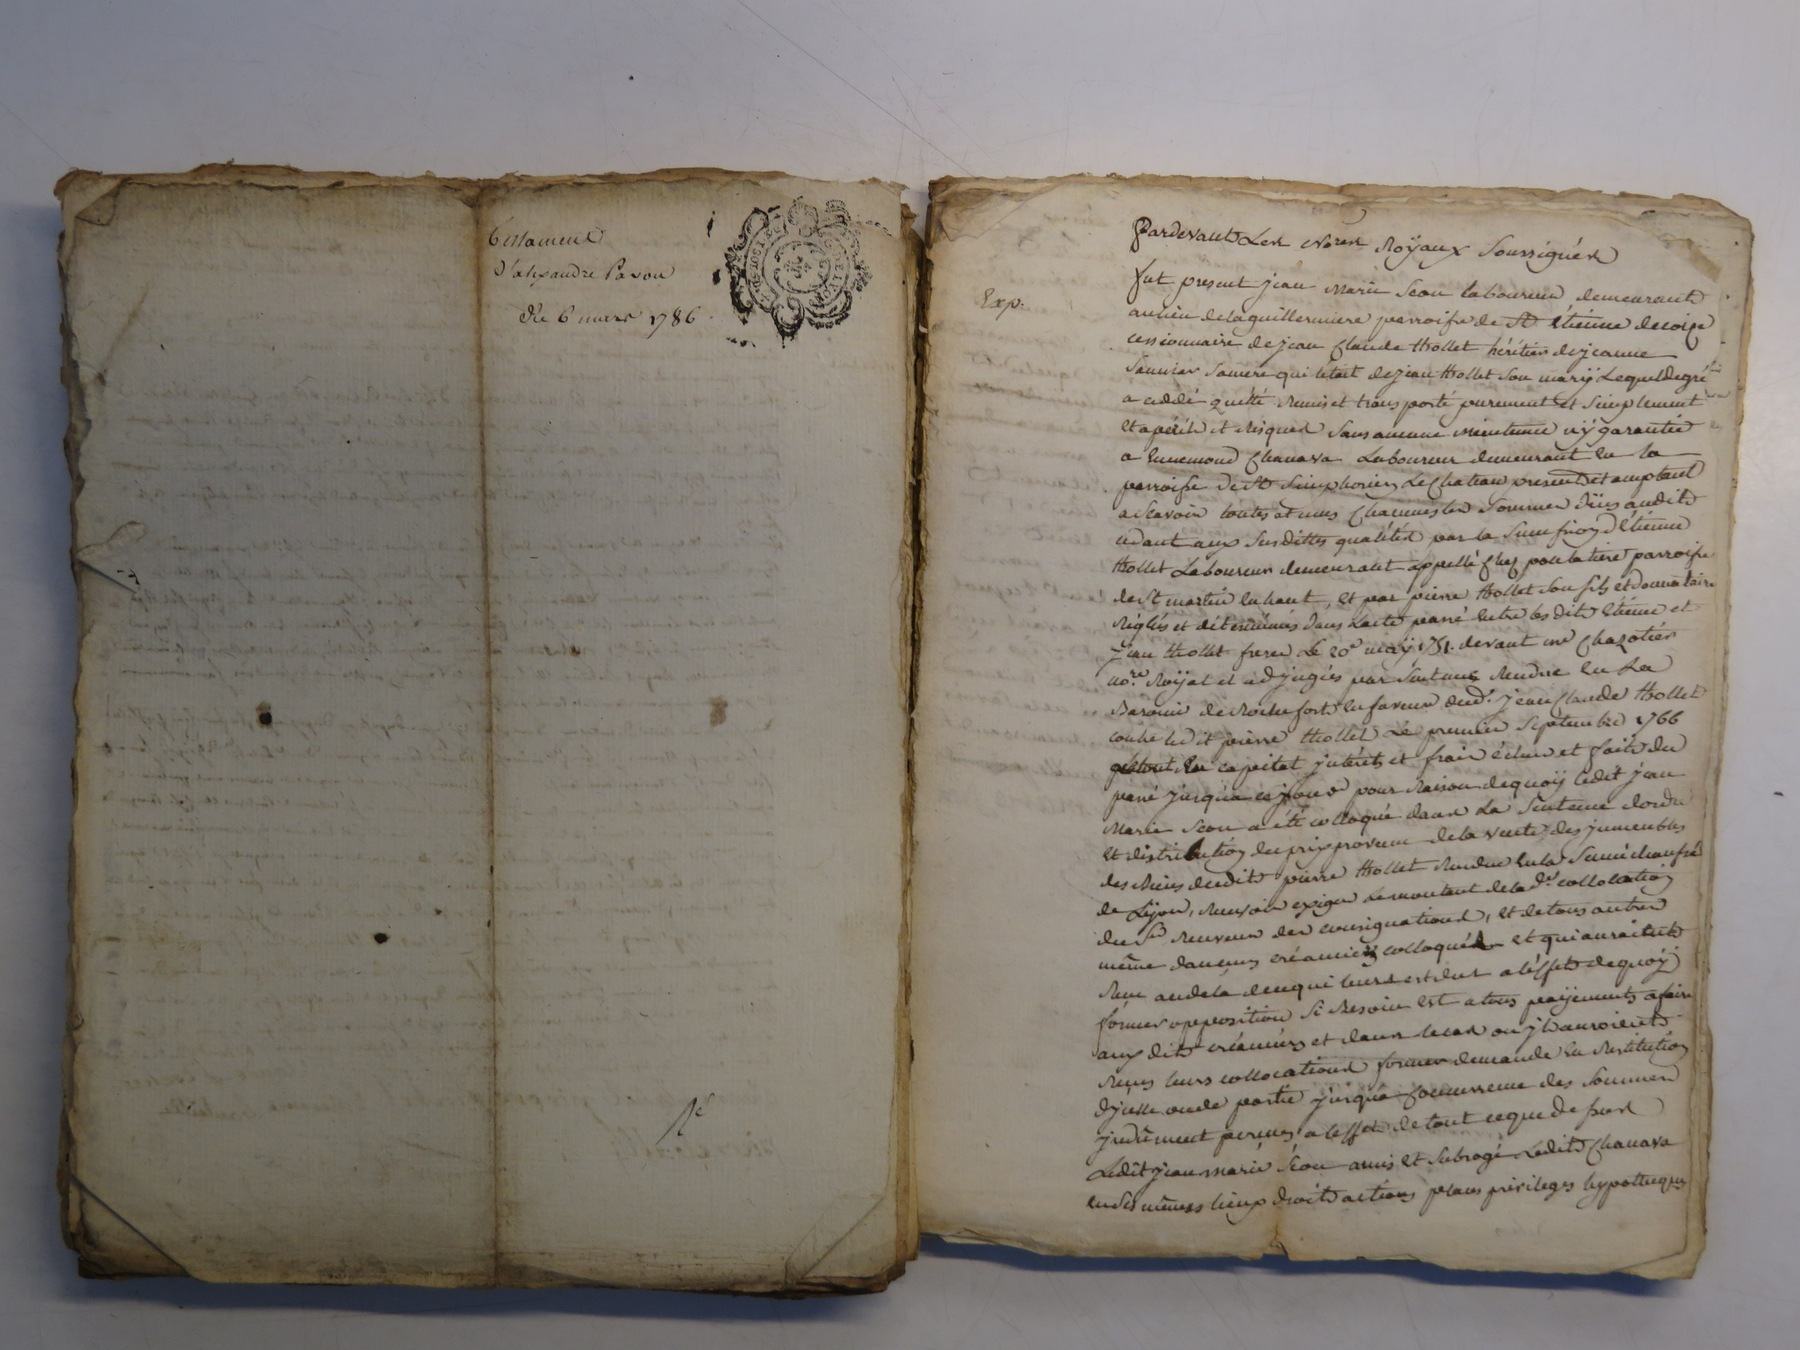 Testament
d'alexandre Pavou
du 6 mars 1786
Exp.
Pardevant Les no.res Royaux Soussignés
fut present jean Marie Seon laboureur demeurant
au lieu de laguillermiere parroisse de St Etiénne de coise
cessionnaire de jean Claude thollet héritier de jeanne
Saunier Sa mere qui létait de jean thollet Son mary Lequel de gré
a cédé quitté remis et transporté purement et Simplement
et a peril et risques Sans aucune maintenue ny garantie
a Ennemond Chanava Laboureur demeurant en la
parroisse de St Simphorien Le Chateau present et acceptant
a Scavoir toutes et unes Chacunes les Sommes dües audit
cédant aux Susdittes qualités par la Succession d'Etiénne
thollet Laboureur demeurant appellé Chez parroisse
de St martin en haut, et par pierre thollet Son fils et donnataire
Réglés et déterminés dans L'acte passé entre les dits Etiénne et
jean thollet freres Le 20e may 1751. devant me Chazotier
no.re Royal et adjugés par Sentence Rendue en La
Baronie de Rochefort en faveur dud.t jean Claude thollet
contre ledit pierre thollet Le premier Séptembre 1766
le tout en capital jnteréts et frais échus et faits du
passé jusqu'a ce jour pour Raison dequoy ledit jean
Marie Seon a été colloqué dans La Sentence d'ordre
et distribution du prix provenu de la vente des jmeubles
des Biens dudit pierre thollet Rendue en la Sénéchaussée
de Lyon, Recevoir exiger Le montant de lad.e collocation
du Sr Receveur des consignations, et de tous autres
même d'aucuns créanciers colloqués et qui auraient
Reçu audela de ce qui leurs est dut a l'éffet dequoy
former opposition Si Besoin est a tous payements a faire
aux dits créanciers et dans le cas ou jls auroient
Reçus leurs collocations former demande en Restitution
d'jcelle ou de partie jusqu'a Concurrence des Sommes
jnduement perçues, a l'effet de tout ce que de Sus
Ledit jean marie Séon a mis et Subrogé Ledit Chanava
en Ses mêmes lieux droits actions places privileges hypotheques